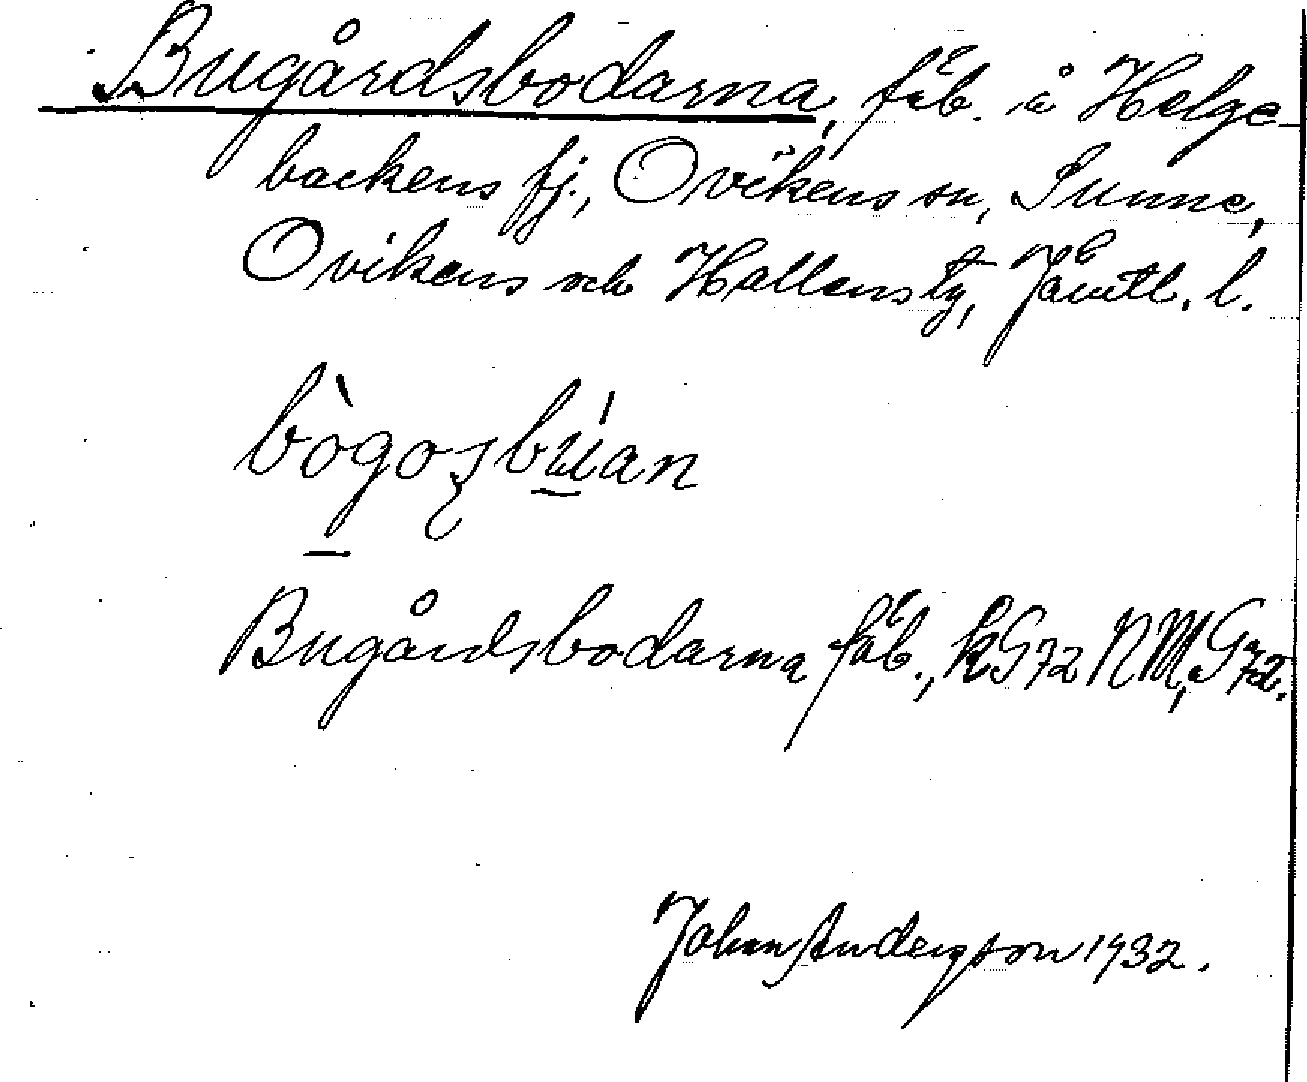 Bugårdsbodarna, fäb. å Helge-
backens fj., Ovikens sn, Sunne,
Ovikens och Hallens tg, Jämtl. l.
bògosbúan
Bugårdsbodarna fäb., kG72 NM, G72.
Johan Andersson 1932.